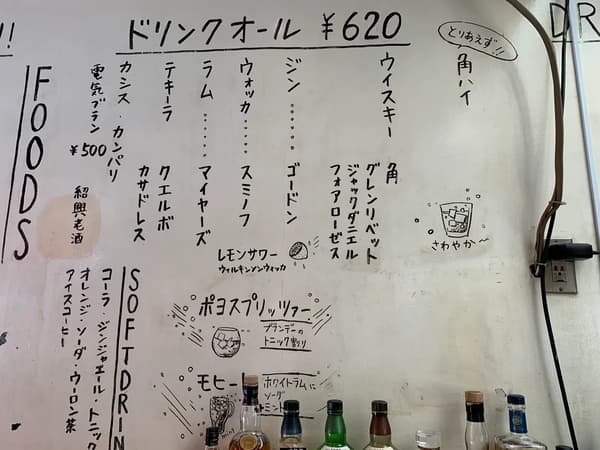 ドリンクオール ¥620
とりあえず!!
角ハイ
さわやか〜
ウイスキー 角
グレンリベット
ジャックダニエル
フォアローゼス
ジン……ゴードン
ウォッカ……スミノフ
ラム……マイヤーズ
テキーラ クエルボ
カサドレス
カシス・カンパリ
電気ブラン ¥500
紹興老酒
レモンサワー
ウィルキンソンウィッカ
ポヨスプリッツァー
ブランデーの
トニック割り
モヒート
ホワイトラムに
ソーダ
ミント
SOFT DRIN
コーラ・ジンジャエール・トニック
オレンジ・ソーダ・ウーロン茶
アイスコーヒー
FOODS
DR